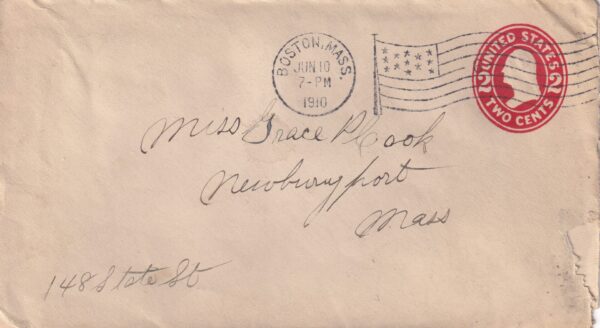 BOSTON, MASS.
JUN 10
7-PM
1910
UNITED STATES
2 2
TWO CENTS
Miss Grace P Cook
Newburyport
Mass
148 State St